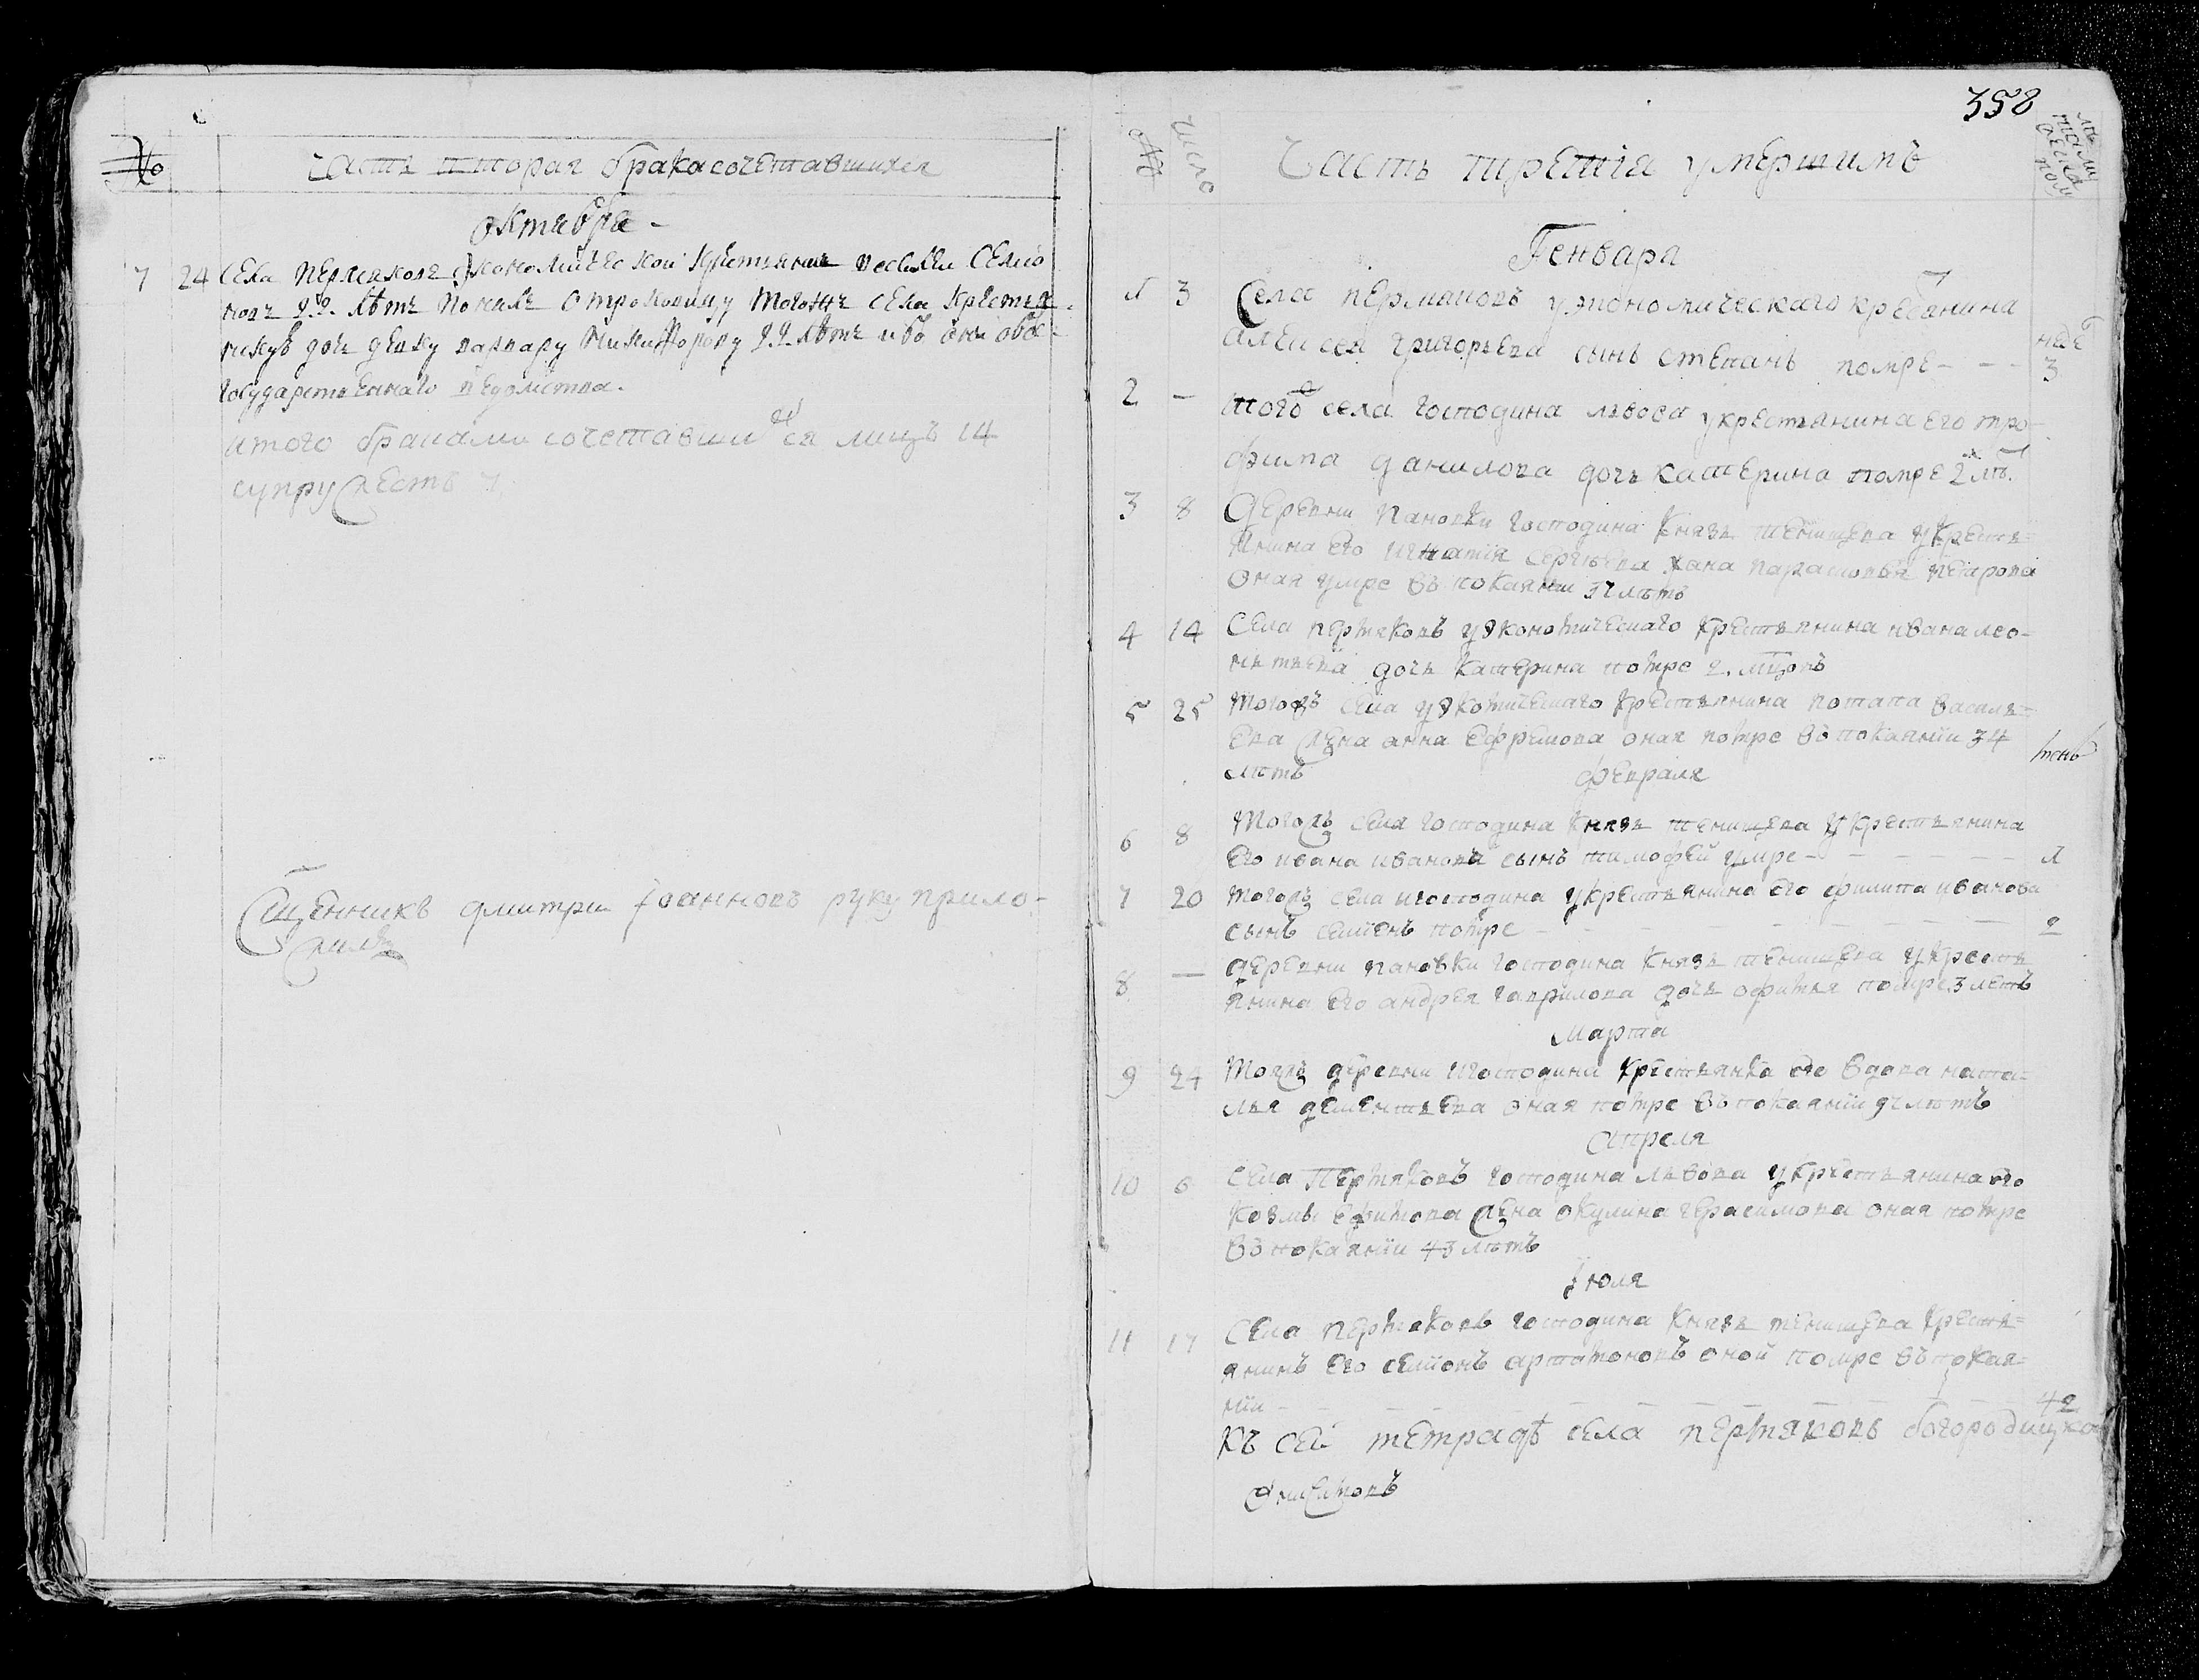 №
Часть вторая бракасочетавшихся
октября
7 24 Села Пермяковъ економической крестьянинъ Семіо
новъ 22 летъ понялъ отроковицу тогожъ села крестья
дочь девку варвару Никифорову 22 летъ оба они обое
государственнаго ведомства.
итого браками сочетавшихся лицъ 14
супружествъ 7
Священникъ дмитри Іоанновъ руку прило-
жилъ
358
№ Число Часть третія умершимъ
Генваря
1 3 Села пермяковъ уэкономическаго кресянина
алексея григорьева сынъ степанъ помре - - - 3
2 — тогоже села господина львова укрестьянина его тро-
фима данилова дочь катерина помре 2 лѣ.
3 8 Деревни пановки господина князь тенишева укресть=
янина его игнатія сергѣева жена парасковья петрова
оная умре въ покаянии 37 лѣтъ
4 14 Села пермяковъ уэкономическаго крестьянина ивана лео-
нтьева дочь катерина помре 2. мцовъ
5 25 Тогожъ села крестьянина потапа василь=
ева жена анна ефремова оная помре въ покаянии 34
лѣтъ
февраля
6 8 Тогожъ села господина князь тенишева укрестьянина
его ивана иванова сынъ тимофей умре - - - 1
7 20 тогожъ села игосподина укрестьянина его филипа иванова
сынъ семіенъ помре - - - 2
8 — деревни пановки господина князь тенишева укресть
янина его андрея гаврилова дочь офимья помре 3 летъ
марта
9 24 Тояжъ деревни игосподина крестьянка его вдова ната=
лья дементьева оная помре въ покаянии лѣтъ
апреля
10 6 Села Пермяковъ господина львова укрестьянина его
козмы ефимова жена окулина герасимова оная помре
въ покаянии 43 лѣтъ
Іюля
11 17 Села пермяковъ господина князь тенишева кресть=
янинъ его семіонъ артамоновъ оной помре въ покая=
нии - - - 42
къ сей тетрадѣ села пермяковъ богородицко